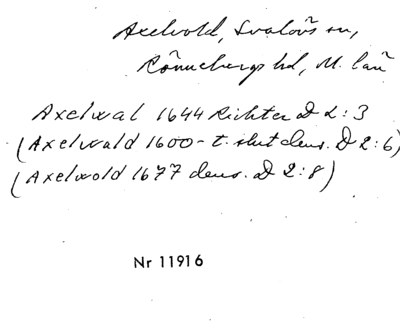 Axelvold, Svalövs sn,
Rönnebergs hd, M. län
Axelwal 1644 Richter D 2:3
(Axelwald 1600-t. slut dens. D 2:6)
(Axelwold 1677 dens. D 2:8)
Nr 11916